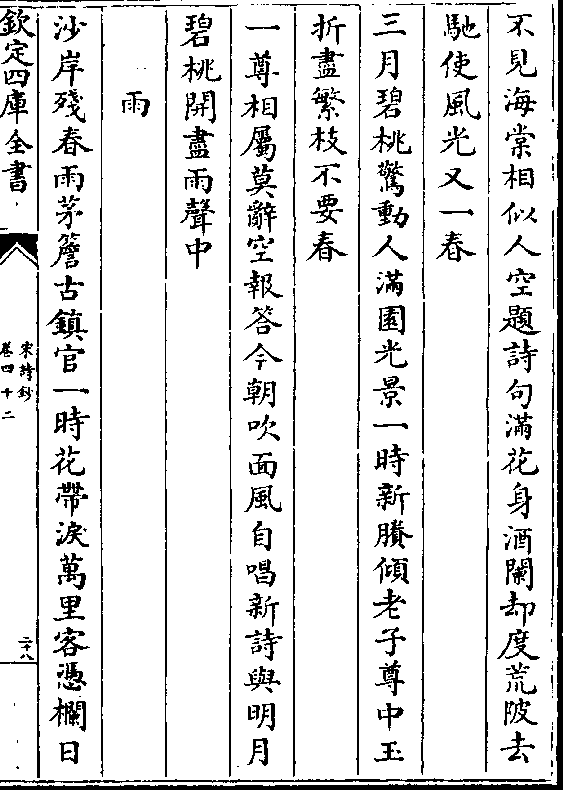 不見海棠相似人空題詩句滿花身酒闌却度荒陂去
馳使風光又一春
三月碧桃驚動人滿園光景一時新賸傾老子尊中玉
折盡繁枝不要春
一尊相屬莫辭空報答今朝吹面風自唱新詩與明月
碧桃開盡雨聲中
雨
沙岸殘春雨茅簷古鎮官一時花帶淚萬里客憑欄日
欽定四庫全書
宋詩鈔
卷四十二
二十八